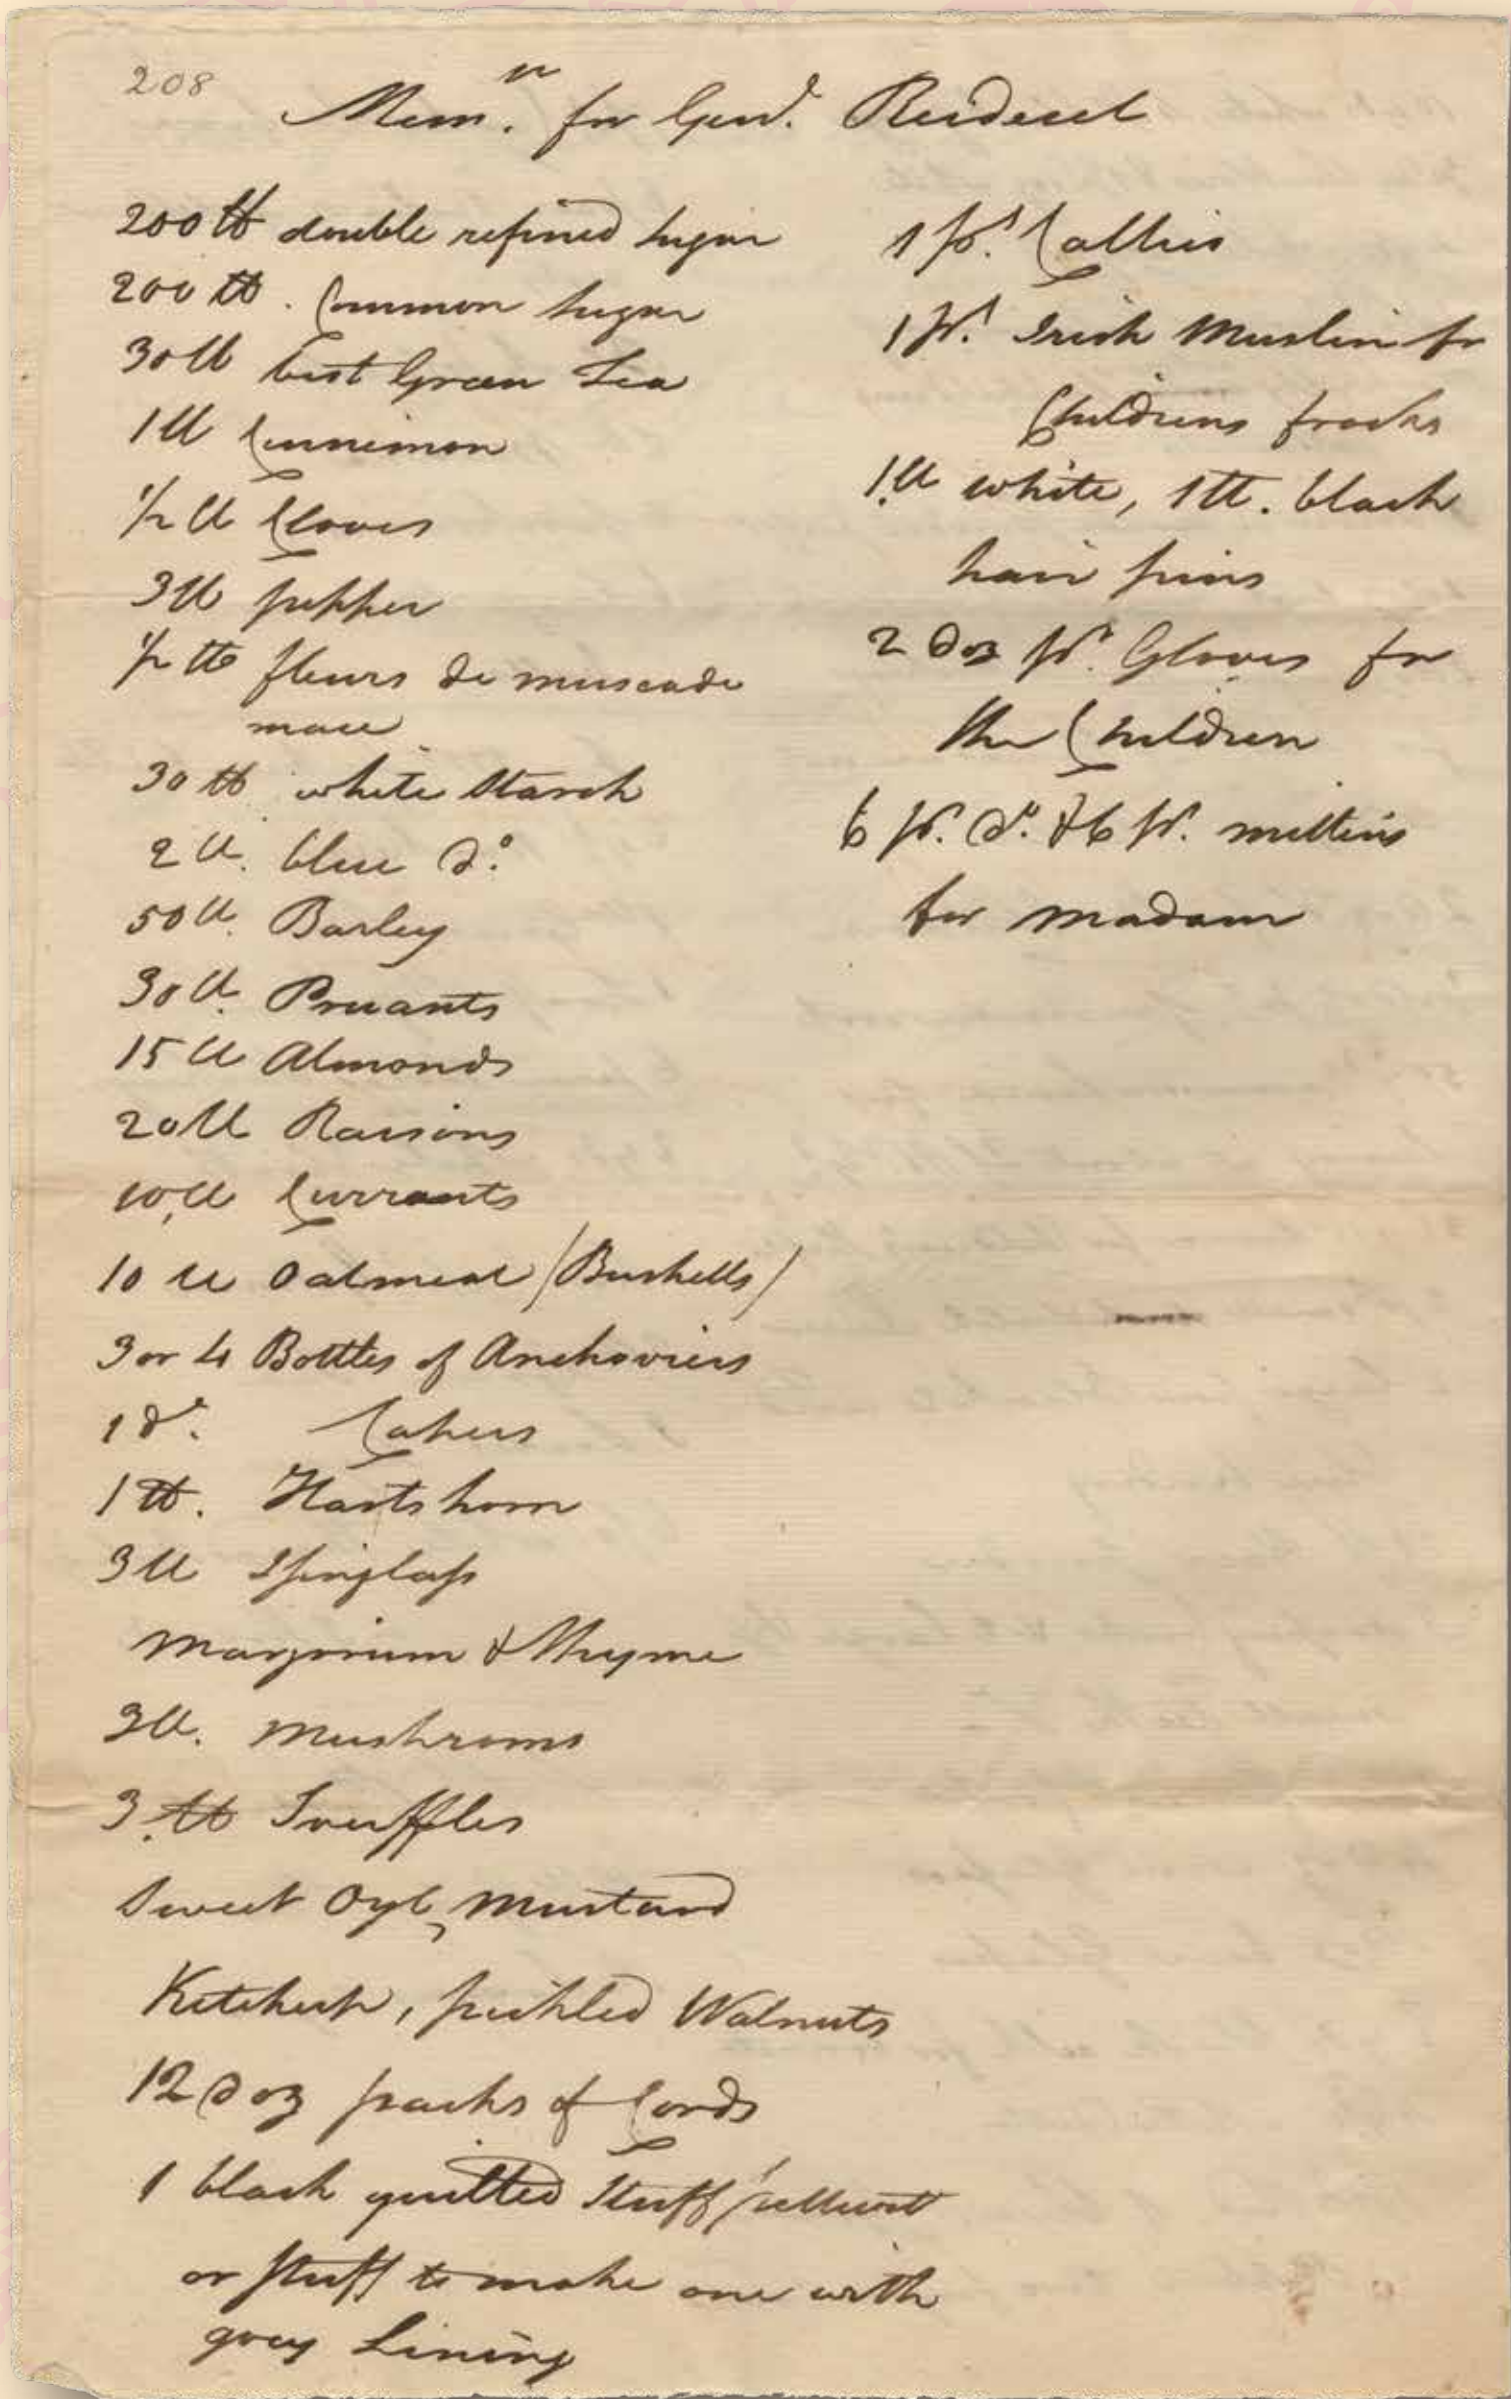 208
Mem.m for Genl. Reidesel
200 lb double refined sugar
200 lb. Common sugar
30 lb best Green Tea
1 lb Cinnimon
1/2 lb Cloves
3 lb pepper
1/2 lb fleurs de muscade
mace
30 lb white Starch
2 lb. blue do.
50 lb. Barley
30 lb. Pruants
15 lb Almonds
20 lb Raisons
10, lb Currants
10 lb Oatmeal (Bushells)
3 or 4 Bottles of Anchoviers
1 do. Capers
1 lb. Hartshorn
3 lb Isinglass
Marjorium & Thyme
3 lb. Mushroms
3. lb Truffles
Sweet Oyl, Mustard
Ketchup, pickled Walnuts
12 Doz packs of Cards
1 black quilted Stuff
or stuff to make one with
grey Lining
1 ps. Callico
1 ps. Irish Muslin for
Childrens frocks
1. lb white, 1 lb. black
hair pins
2 Doz pr. Gloves for
the Children
6 pr. do. & 6 pr. mittins
for Madam